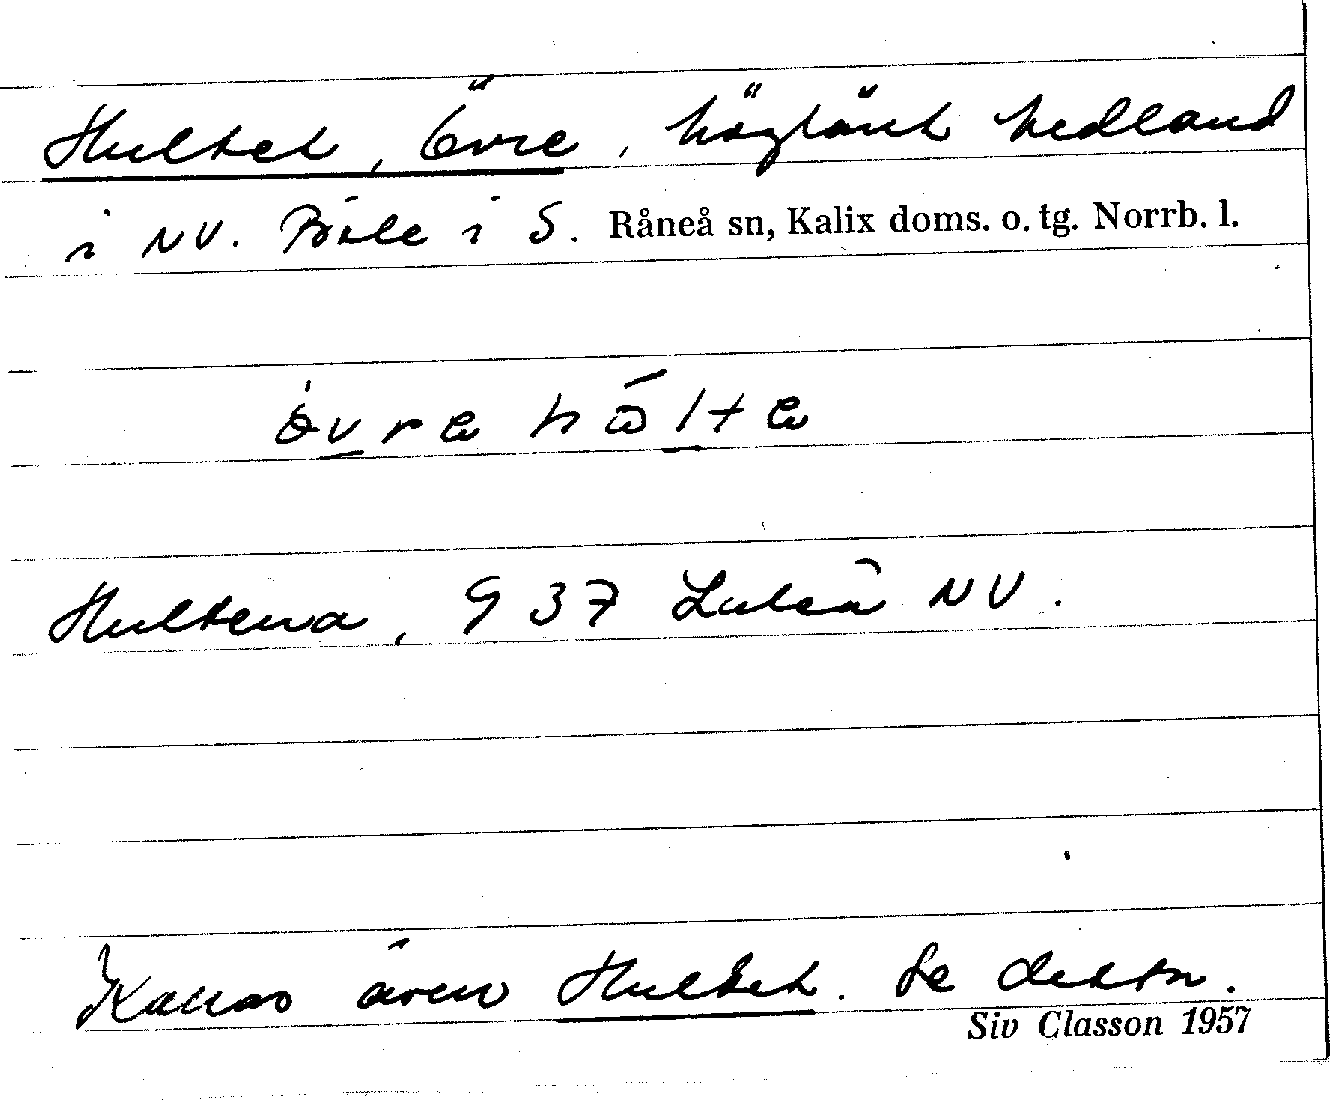 Hultet, Övre, höglänt hedland
i NV. Böle i S. Råneå sn, Kalix doms. o. tg. Norrb. l.
övre hōlte
Hultena, G 37 Luleå NV.
Kallas även Hultet. Se detta.
Siv Classon 1957